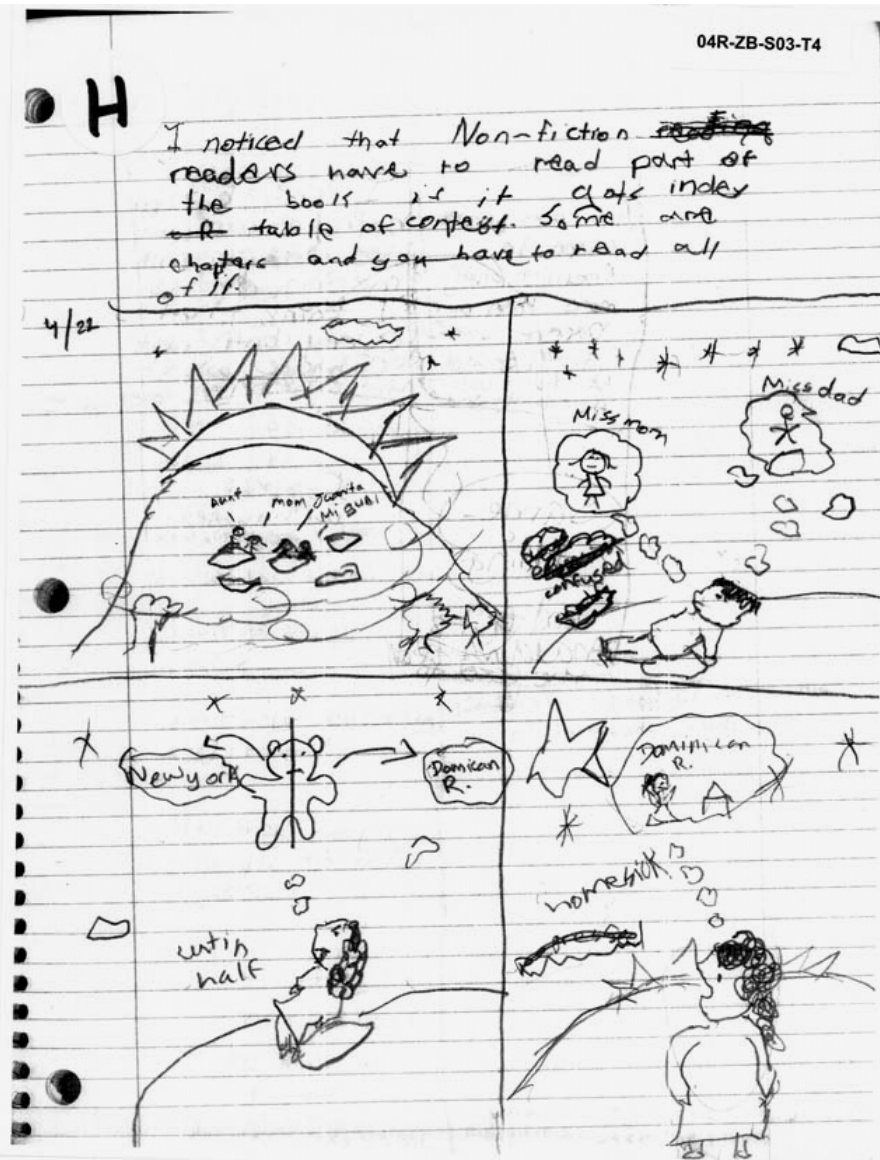 04R-ZB-S03-T4
H
I noticed that Non-fiction
readers have to read part of
the book if it gots index
table of contest. Some are
chapters and you have to read all
of it.
4/22
Aunt
mom Juanita
Miguel
Miss mom
Miss dad
confused
New york
Domican
R.
cut in
half
Dominican
R.
homesick